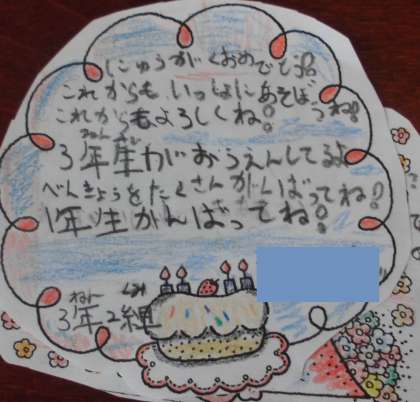 にゅうがくおめでとう
これからも、いっしょにあそぼうね!
これからもよろしくね!
ねんせい
3年生がおうえんしてるよ
べんきょうをたくさんがんばってね!
1年生がんばってね!
ねん くみ
3年2組